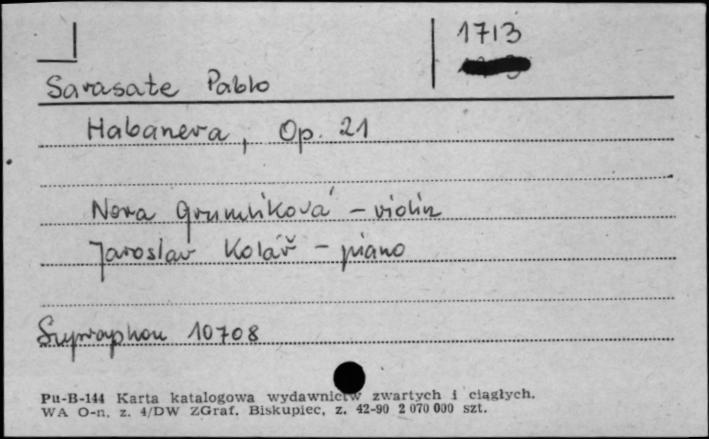 1713
Sarasate Pablo
Habanera, Op. 21
Nora Grumlíková - violin
Jaroslav Kolář - piano
Supraphon 10708
Pu-B-144 Karta katalogowa wydawnictw zwartych i ciągłych.
WA O-n. z. 4/DW ZGraf. Biskupiec, z. 42-90 2 070 000 szt.